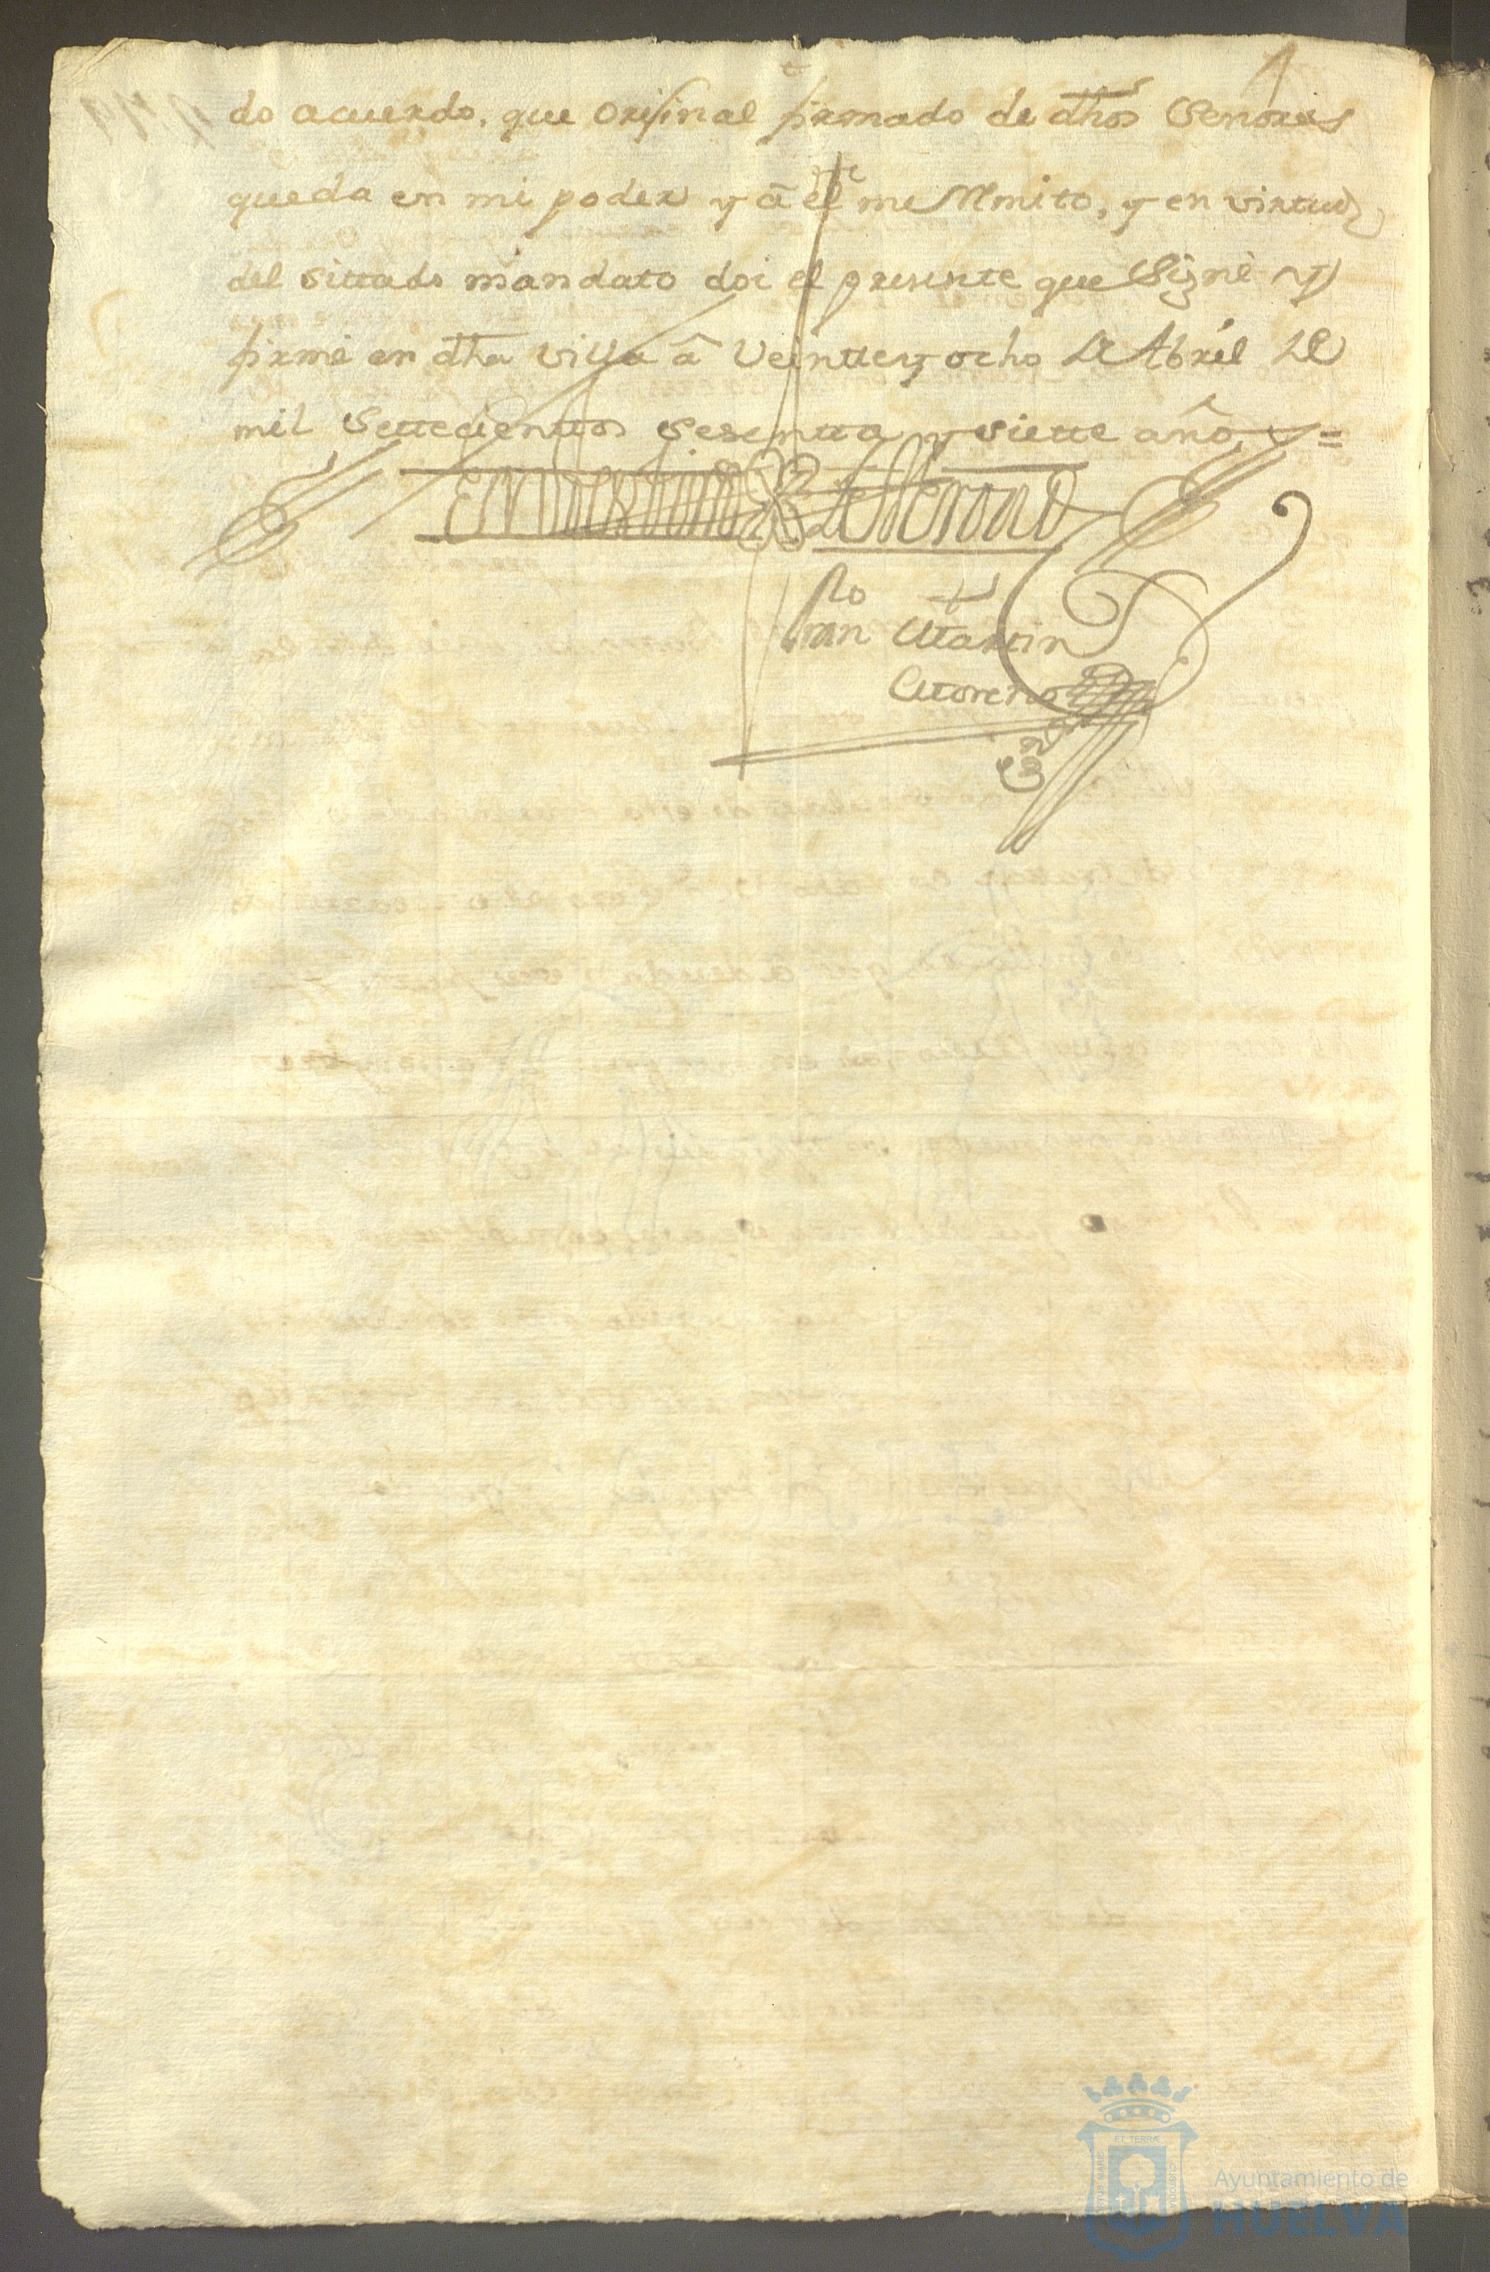 do acuerdo, que orijinal firmado de dhos Senores
queda en mi poder y â el me Rmito, y en virtud,
del sittado mandato doi el presente que Signè y
firmè en dha villa â Veintte y ocho de Abril de
mil Settecienttos Sesentta y siette años =
En testimo de Verdad
Fran co Martin
Moreno
Es no
Ayuntamiento de
HUELVA